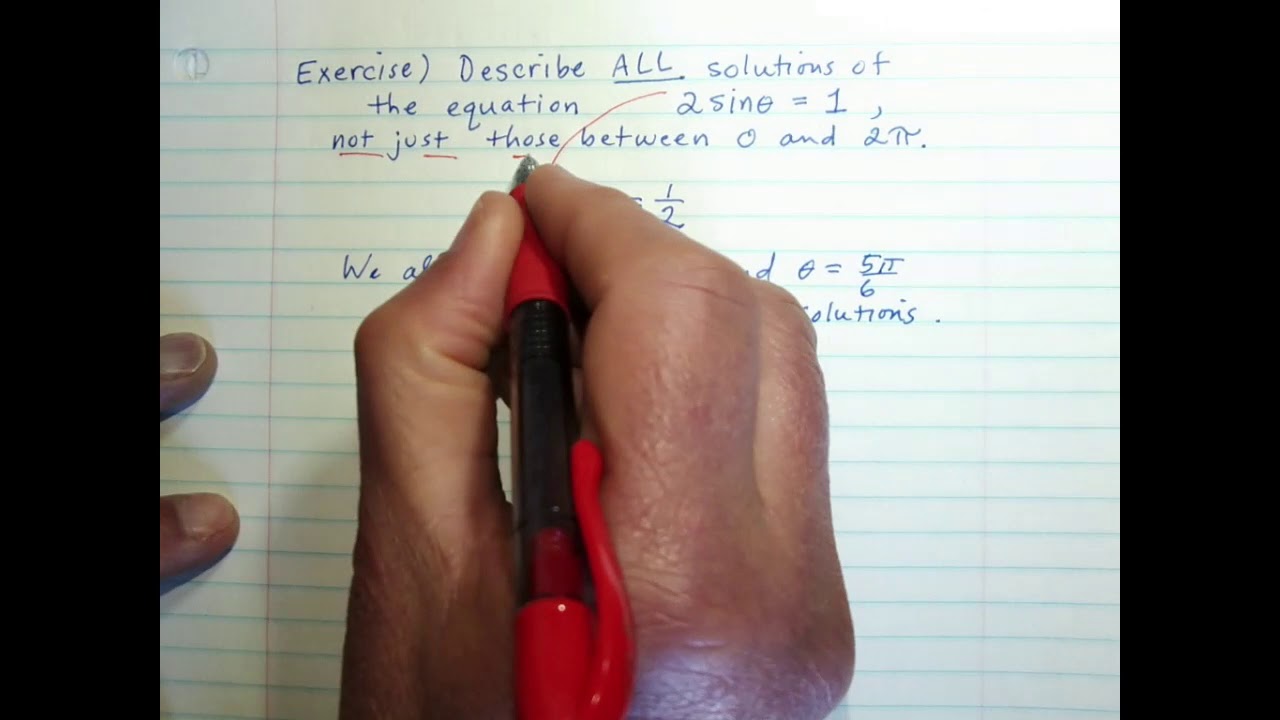 ①
Exercise) Describe ALL solutions of
the equation 2 sinθ = 1 ,
not just those between 0 and 2π.
= 1/2
We θ = 5π/6
solutions .